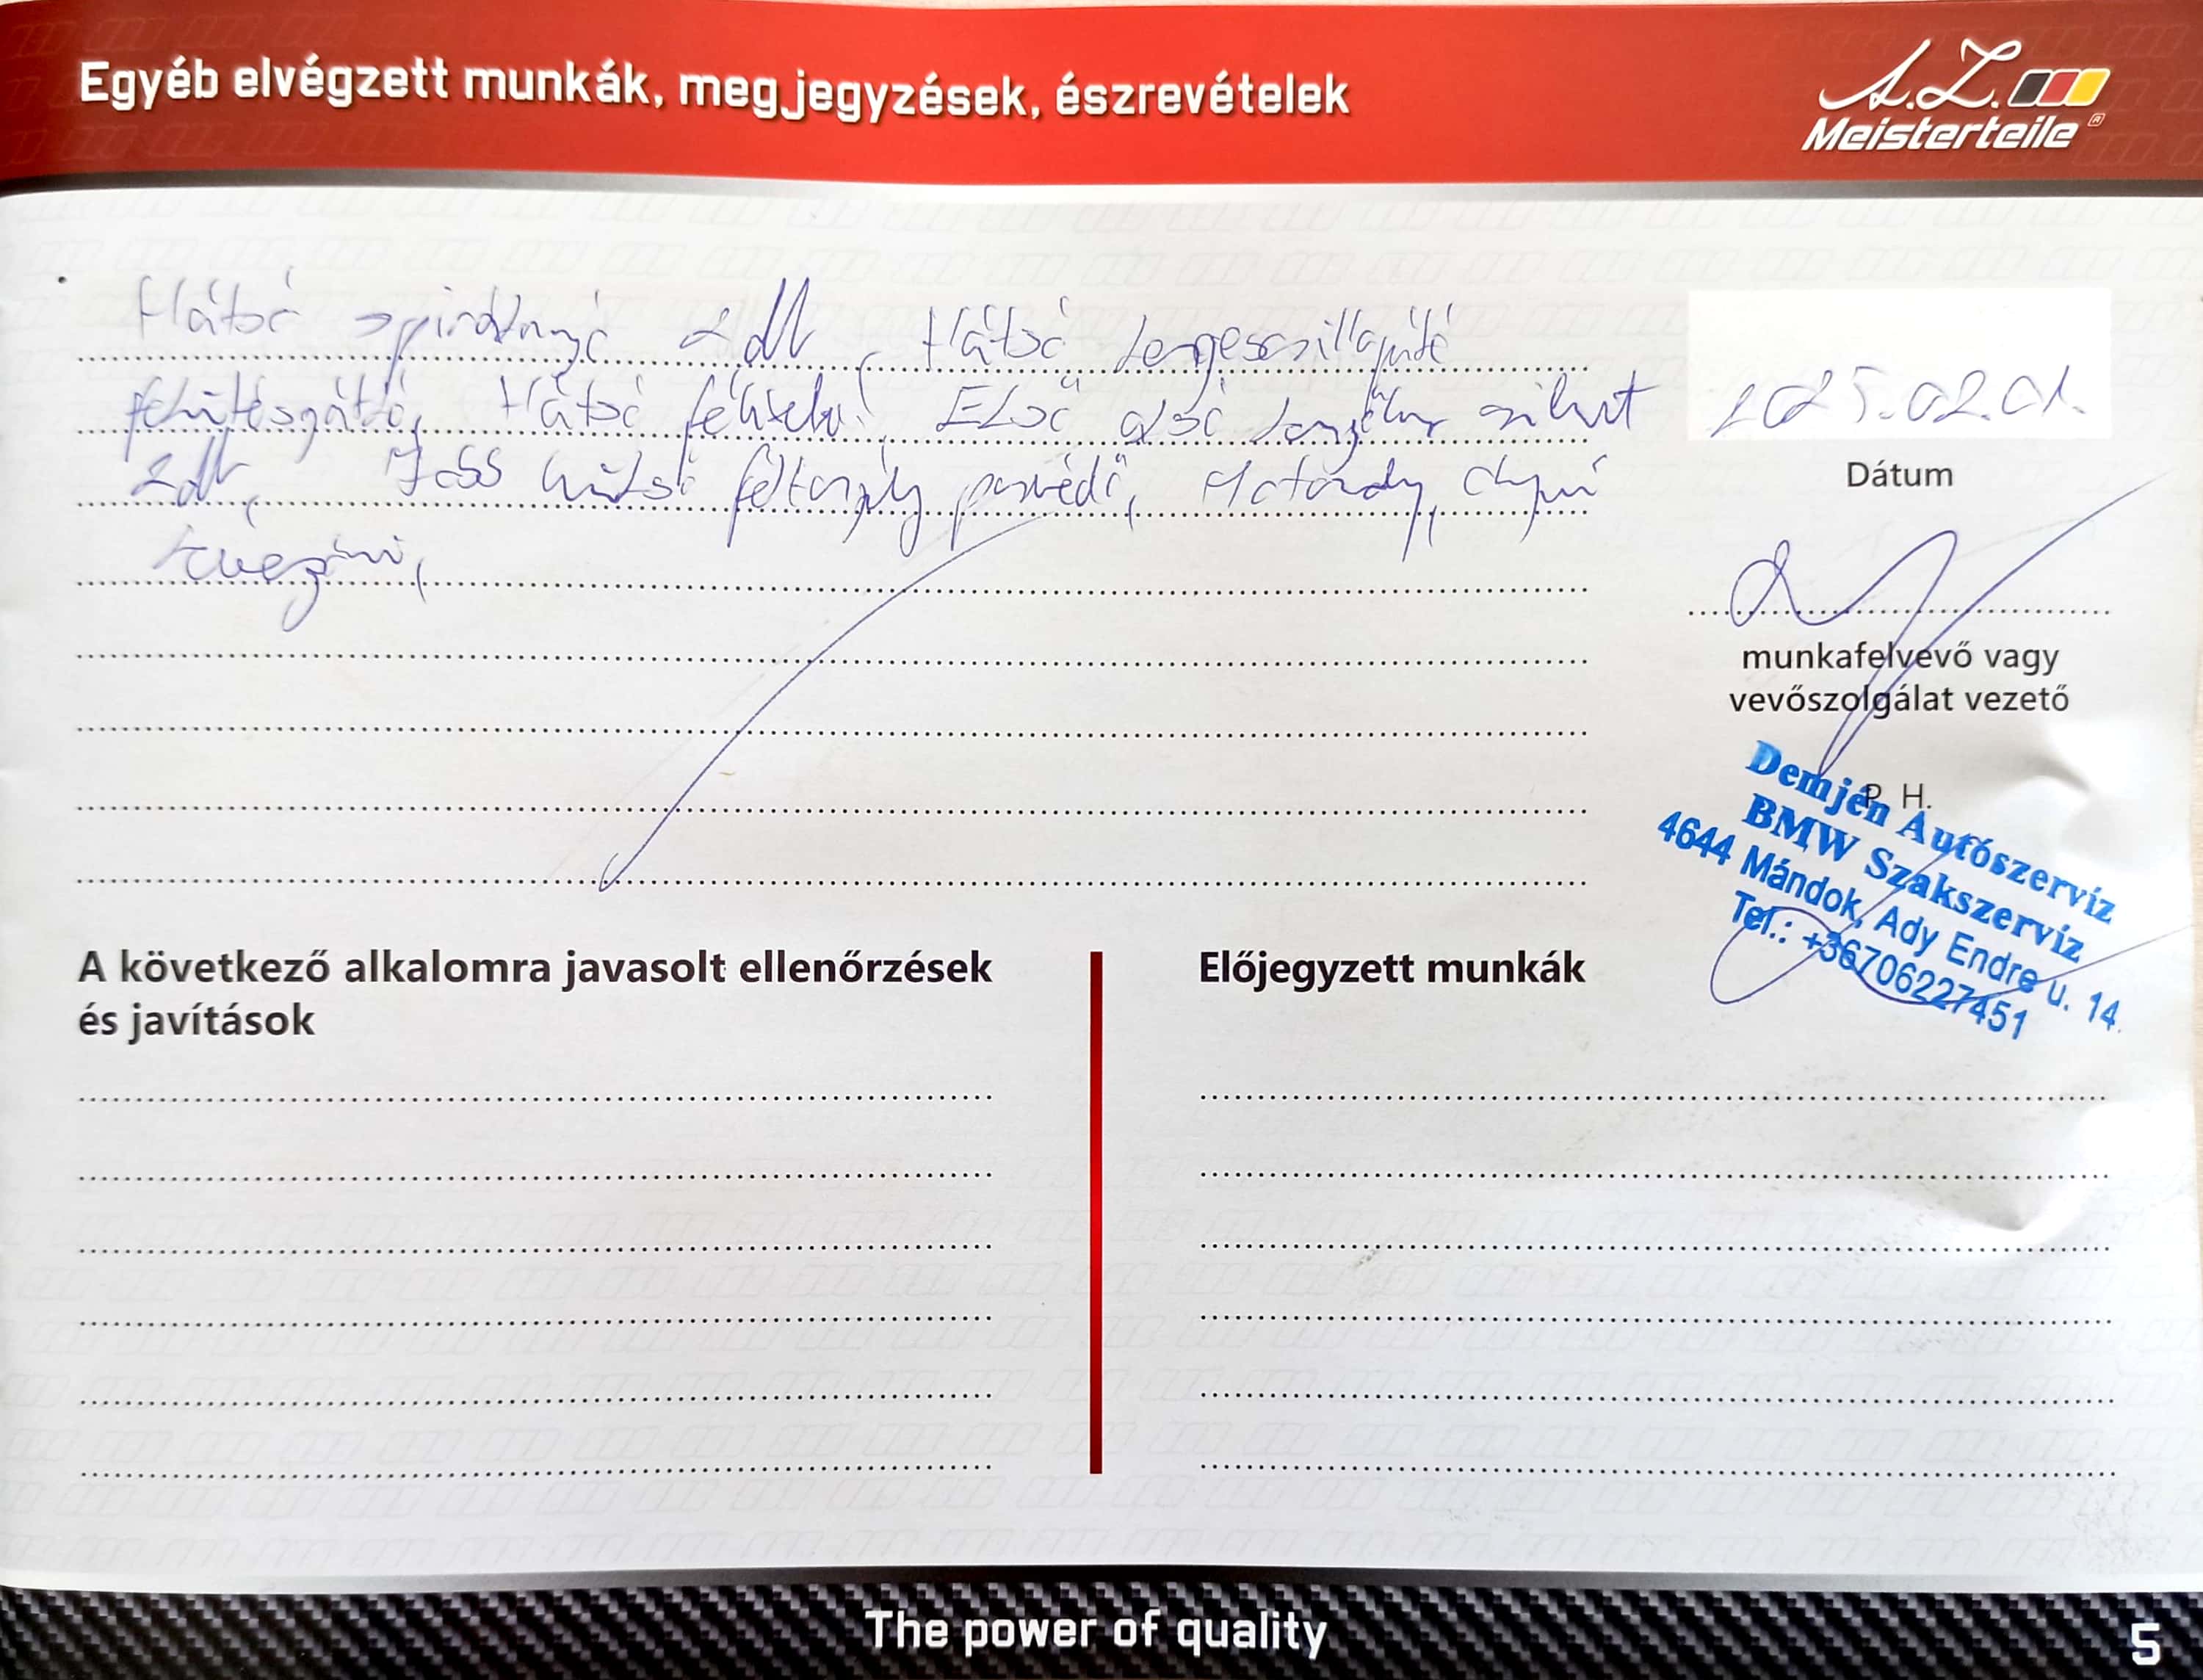 Egyéb elvégzett munkák, megjegyzések, észrevételek
A.Z. Meisterteile®
Hátsó spirálrugó 2db, Hátsó lengéscsillapító
felütésgátló, Hátsó Első alsó szilent
2db, hátsó féltengely porvédő,
2025.02.01.
Dátum
munkafelvevő vagy
vevőszolgálat vezető
P. H.
Demjén Autószervíz
BMW Szakszervíz
4644 Mándok, Ady Endre u. 14.
Tel.: +36706227451
A következő alkalomra javasolt ellenőrzések
és javítások
Előjegyzett munkák
The power of quality
5